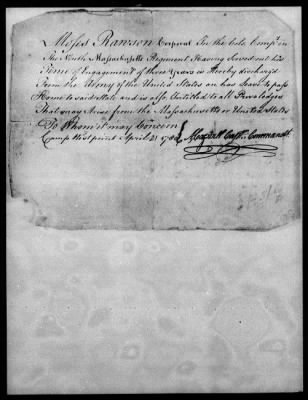 Moses Rawson Corporal In the Colo. Compy. in
The Ninth Massachusetts Regiment Having Served out his
Time of Engagement of three Years is Hereby discharg'd
From the Army of the United States an has Leave to pass
Home to said State and is also Entitled to all Priviledges
That may Arise from the Massachusetts or United States
To Whom it may Concern
Camp West point April 21 Capt. Commandt.